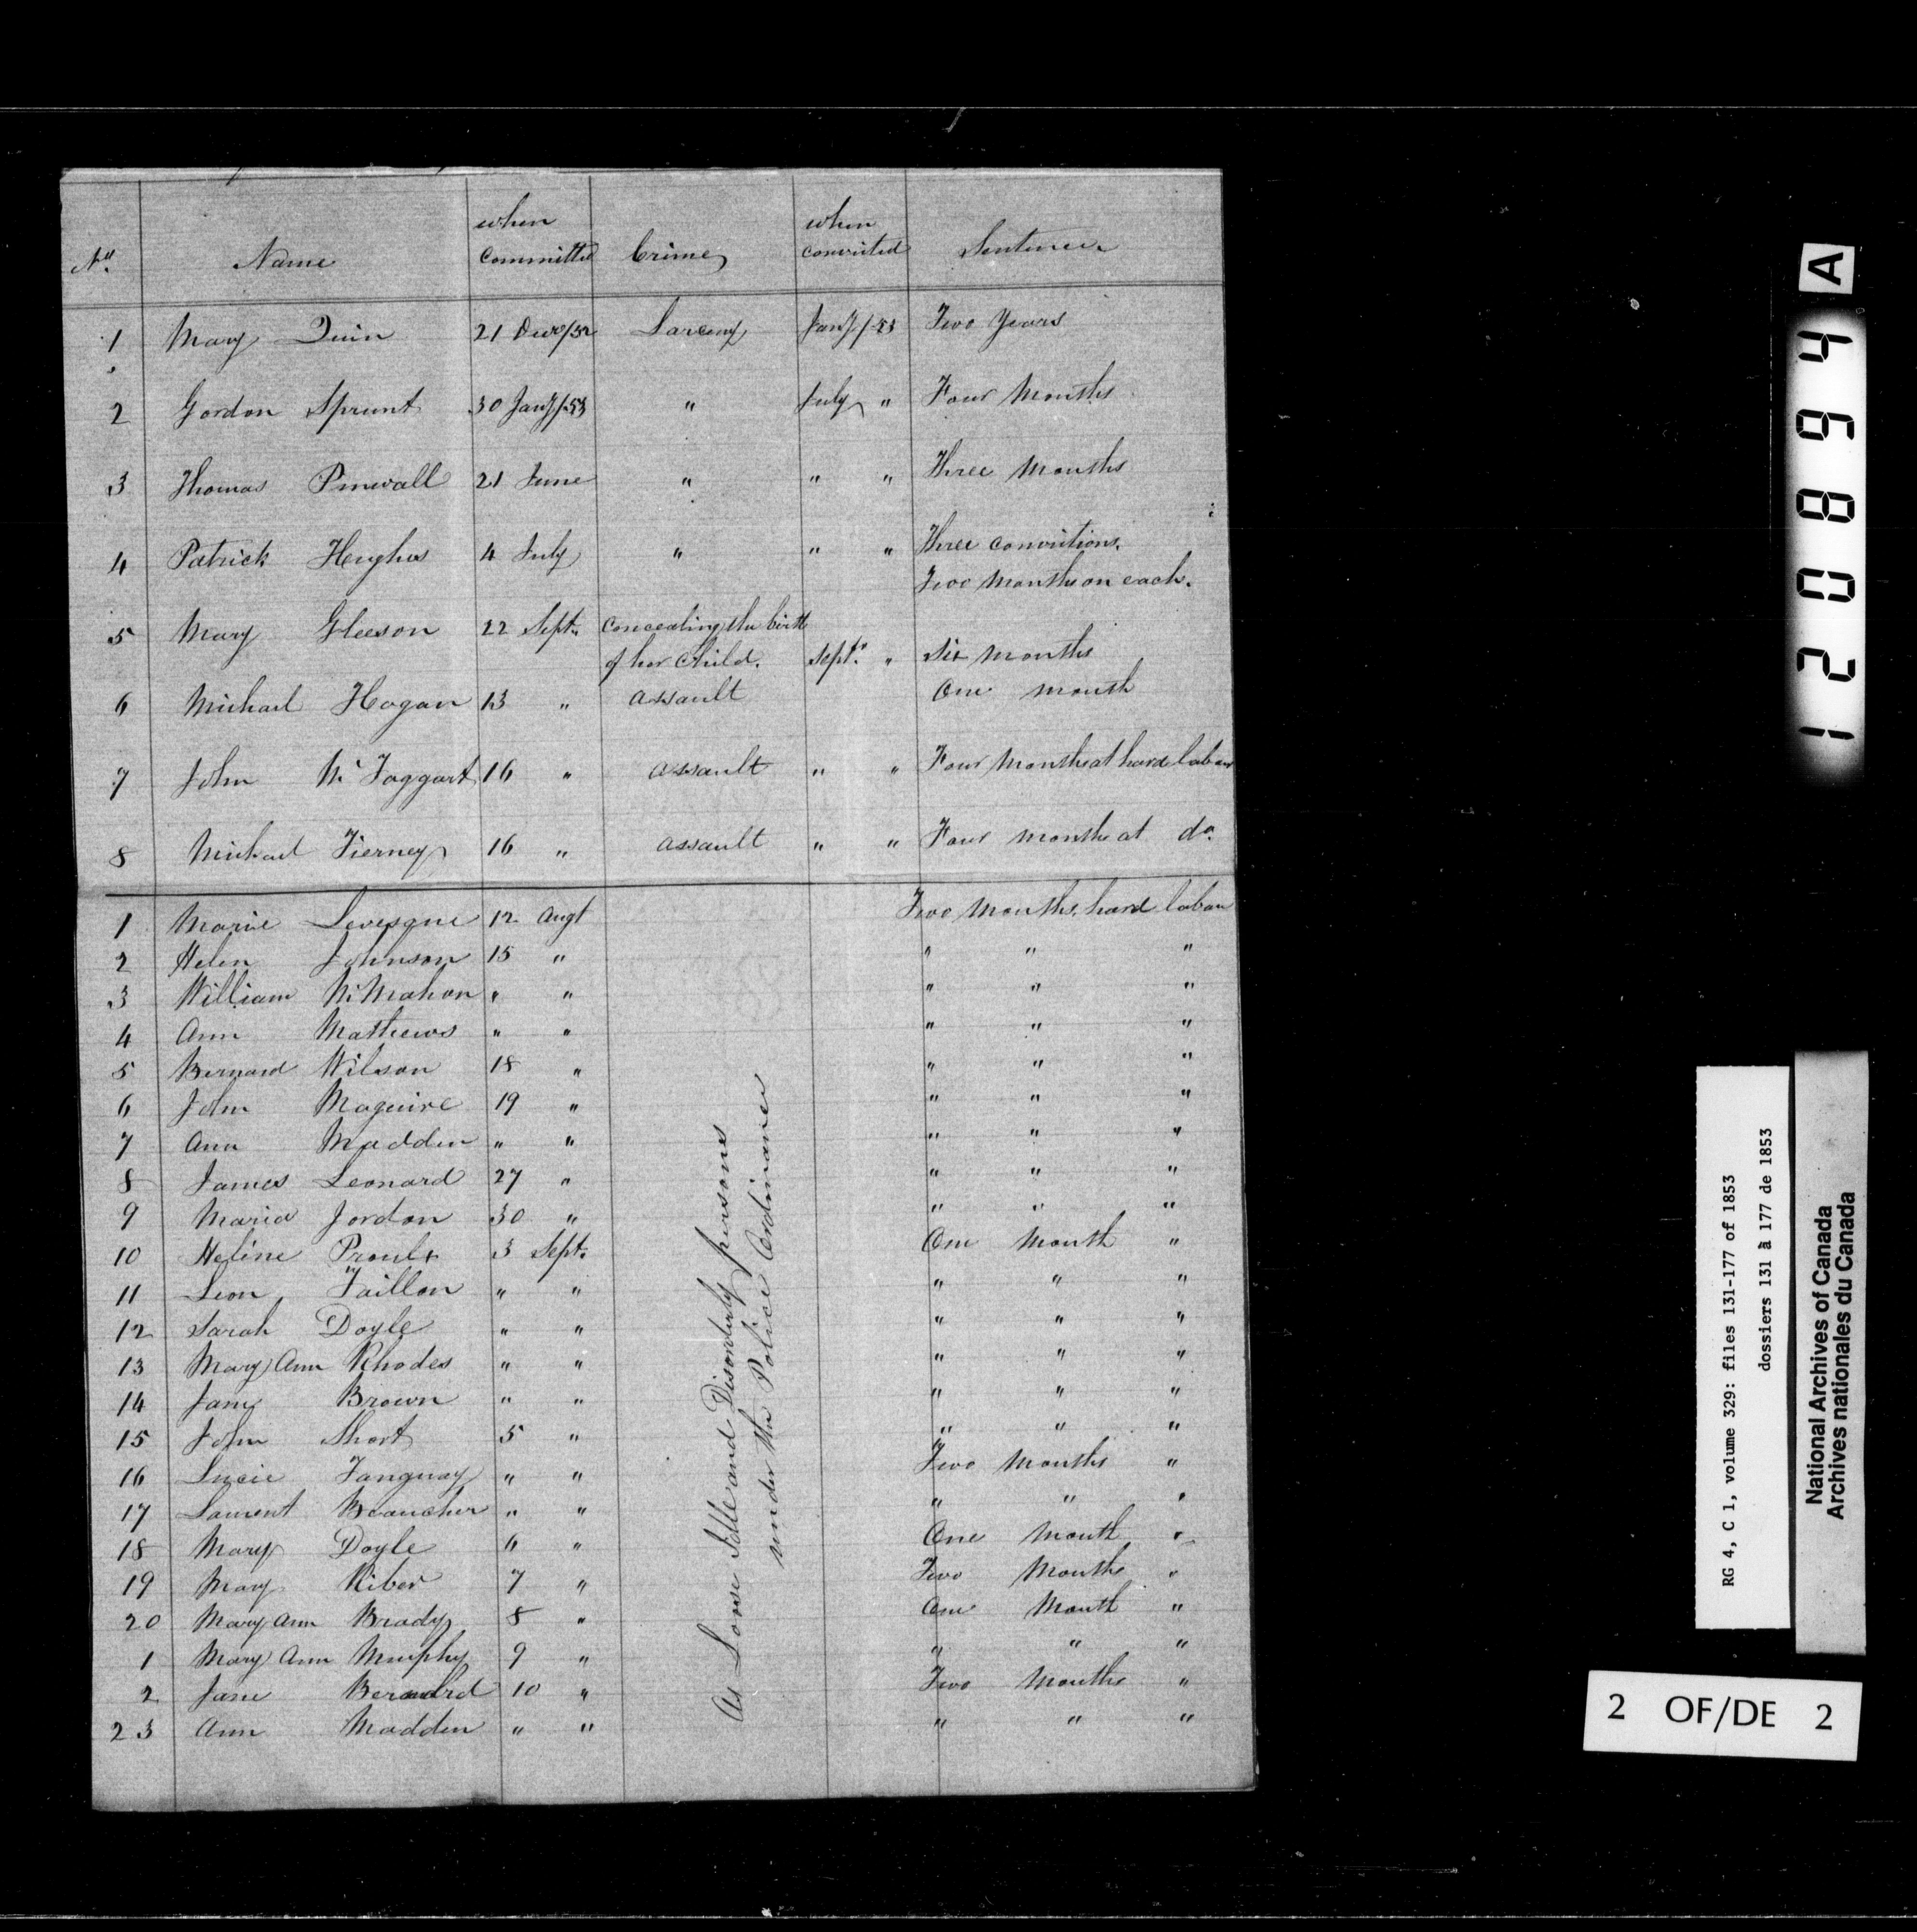 No. Name when Committed Crime when convicted Sentence
1 Mary Quin 21 Decr/52 Larceny Jany/53 Two Years
2 Gordon Sprunt 30 Jany/53 " July " Four Months
3 Thomas Pinwall 21 June " " " Three Months
4 Patrick Hughes 4 July " " " Three convictions.
Two Months on each.
5 Mary Gleeson 22 Sept. Concealing the birth
of her Child. Sept. " Six months
6 Michael Hogan 13 " assault One month
7 John McTaggart 16 " assault " " Four Months at hard labour
8 Michael Tierney 16 " assault " " Four months at do.
1 Marie Levesque 12 Augt Two Months, hard labour
2 Helen Johnson 15 " " " "
3 William McMahon " " " " "
4 Ann Mathews " " " " "
5 Bernard Wilson 18 " " " "
6 John Maguire 19 " " " "
7 Ann Madden " " " " "
8 James Leonard 27 " " " "
9 Maria Jordon 30 " " " "
10 Heline Proulx 3 Sept. One Month "
11 Leon Taillon " " " " "
12 Sarah Doyle " " " " "
13 Mary Ann Rhodes " " " " "
14 Jane Brown " " " " "
15 John Short 5 " " " "
16 Lucie Tanguay " " Two Months "
17 Laurent Beaucher " " " " "
18 Mary Doyle 6 " One Month "
19 Mary Riber 7 " Two Months "
20 Mary Ann Brady 8 " One Month "
1 Mary Ann Murphy 9 " " " "
2 Jane Berard 10 " Two Months "
23 Ann Madden " " " " "
As Loose Idle and Disorderly persons
under the Police Ordinance
120894 A
RG 4, C 1, volume 329: files 131-177 of 1853
dossiers 131 à 177 de 1853
National Archives of Canada
Archives nationales du Canada
2 OF/DE 2